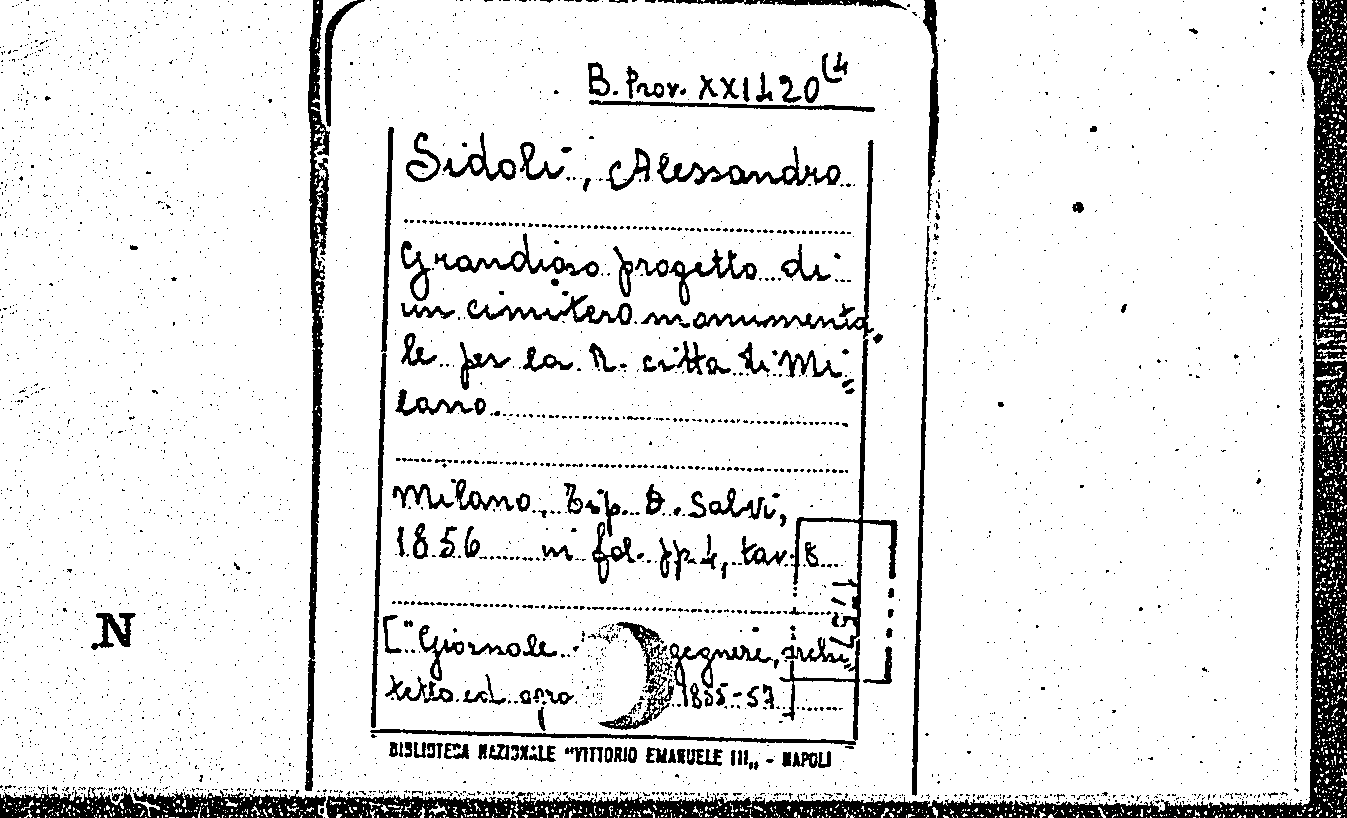 B. Prov. XXI L 20 (4
Sidoli, Alessandro
Grandioso progetto di
un cimitero monumenta,
le per la R. città di Mi=
lano.
Milano, Tip. D. Salvi,
1856 in fol. pp. 4, tav. 8
1757
["Giornale gegnere, archi=
tetto ed agro 1855-57]
BIBLIOTECA NAZIONALE "VITTORIO EMANUELE III„ - NAPOLI
N